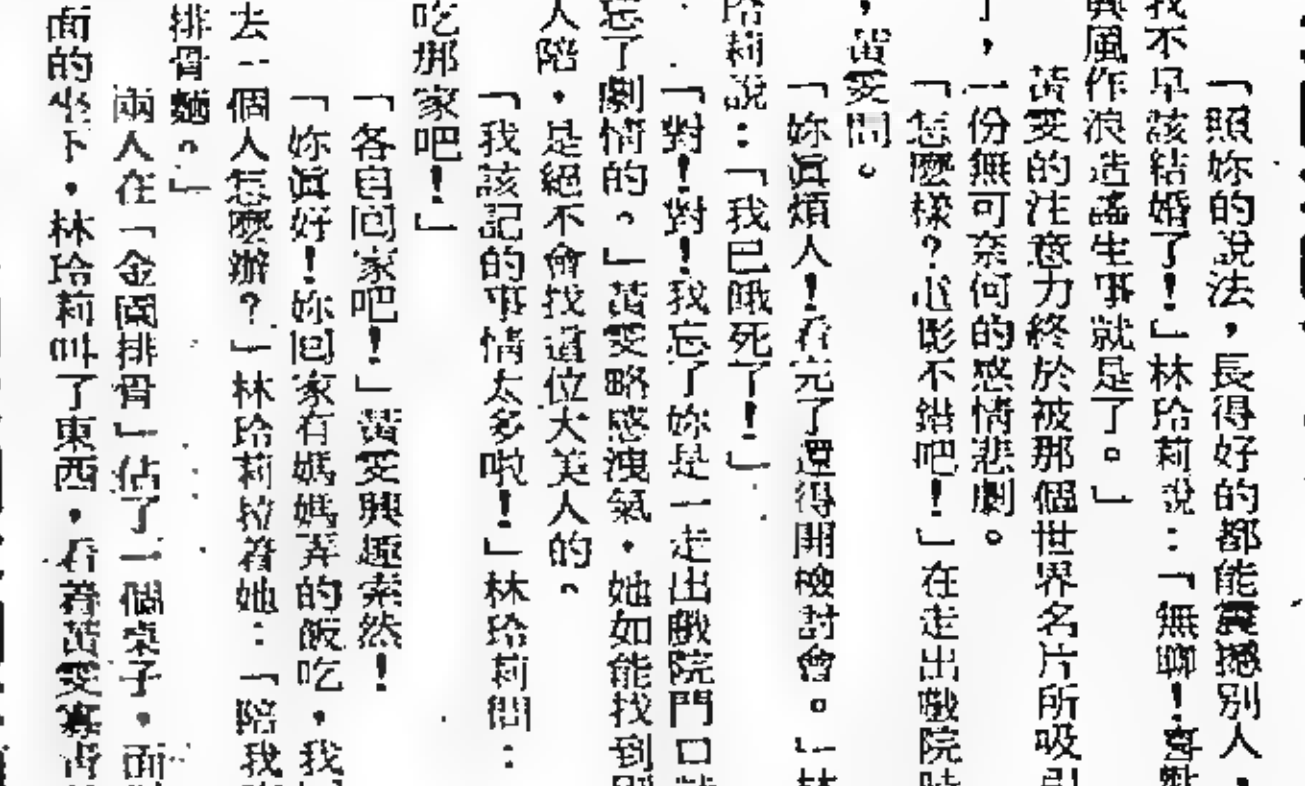 「照妳的說法，長得好的都能震撼別人，
我不早該結婚了！」林玲莉說：「無聊！喜歡
興風作浪造謠生事就是了。」
黃雯的注意力終於被那個世界名片所吸引
了，一份無可奈何的感情悲劇。
「怎麼樣？電影不錯吧！」在走出戲院時
，黃雯問。
「妳眞煩人！看完了還得開檢討會。」林
玲莉說：「我已餓死了！」
「對！對！我忘了妳是一走出戲院門口就
忘了劇情的。」黃雯略感洩氣，她如能找到別
人陪，是絕不會找這位大美人的。
「我該記的事情太多啦！」林玲莉問：
吃那家吧！」
「各自回家吧！」黃雯興趣索然！
「妳眞好！妳回家有媽媽弄的飯吃，我
去一個人怎麼辦？」林玲莉拉着她：「陪我
排骨麵。」
兩人在「金園排骨」佔了一個桌子，面
面的坐下，林玲莉叫了東西，看着黃雯寡